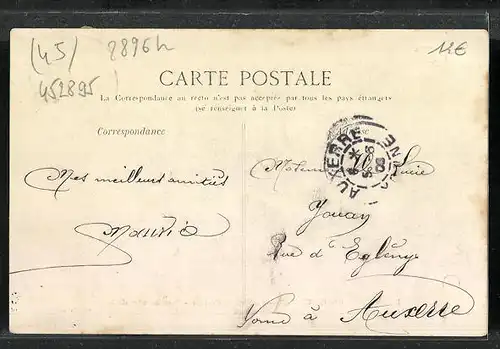 (45) 2896h 12€
452895
CARTE POSTALE
La Correspondance au recto n'est pas acceptée par tous les pays étrangers
(se renseigner à la Poste)
Correspondance
Adresse
AUXERRE
YONNE
Lucie
Mes meilleurs amitiés
Maurice
Rue d'
Yonne à Auxerre